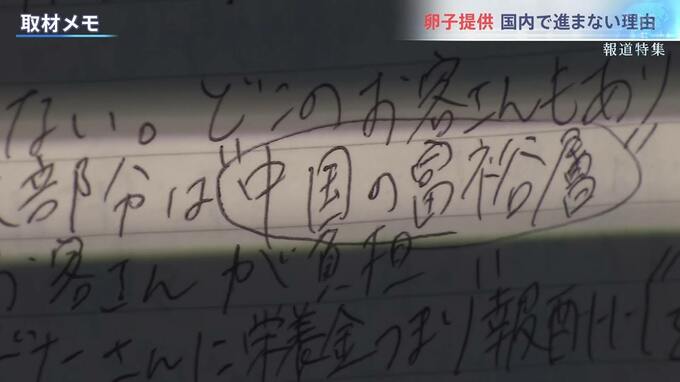 取材メモ
卵子提供 国内で進まない理由
報道特集
ない。どこのお客さんもあり
部分は"中国の富裕層"
お客さんが負担"
ナーさんに栄養金つまり報酬